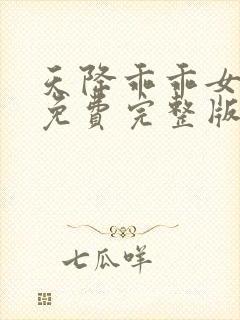 天降乖乖女
免费完整版
七瓜咩